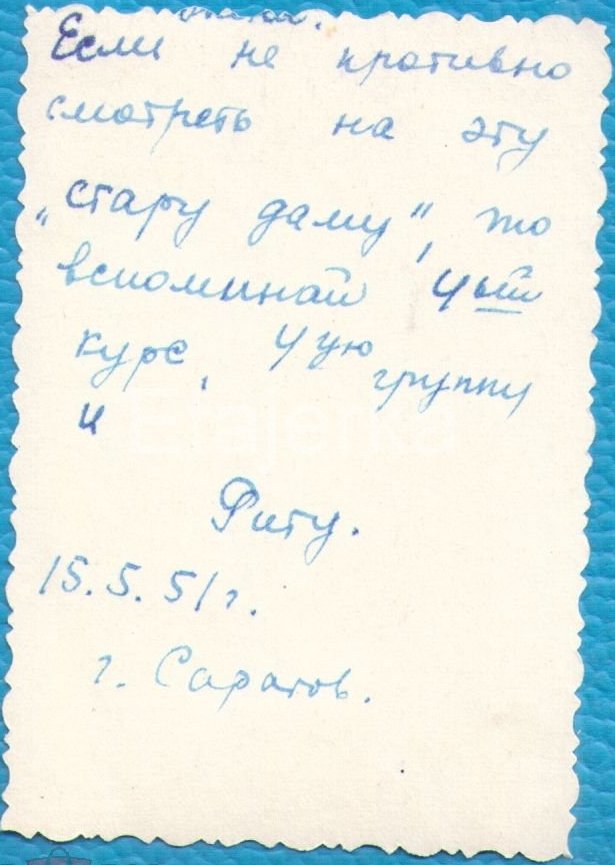 Если не противно
смотреть на эту
„стару даму“, то
вспоминай 4ый
курс, 4ую группу
и
Риту.
15.5.51г.
г. Саратов.
Etajerka